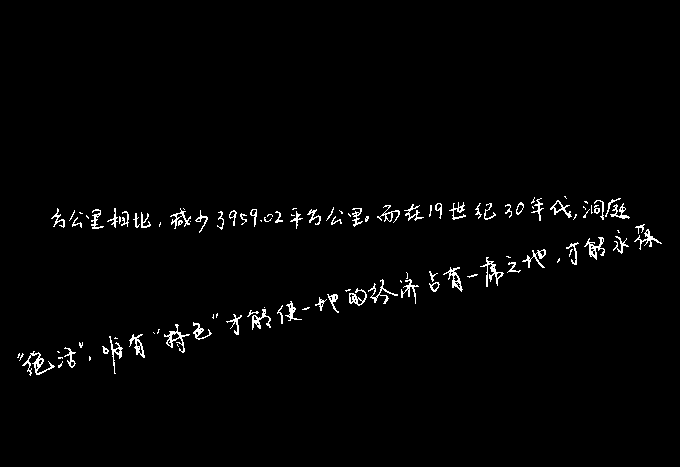 方公里相比,减少3959.02平方公里。而在19世纪30年代,洞庭
“绝活”,唯有“特色”才能使一地的经济占有一席之地,才能永葆